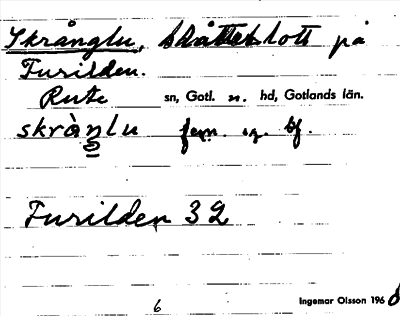 Skrånglu, skåttetslott på
Furilden.
Rute sn, Gotl. n. hd, Gotlands län.
skrånlu fem. sg. bf.
Furilden 32
Ingemar Olsson 1968
6